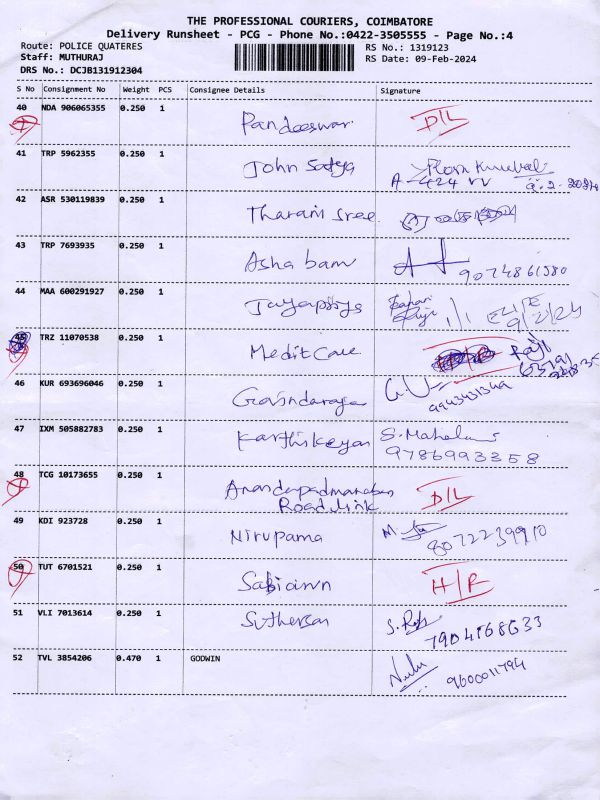 THE PROFESSIONAL COURIERS, COIMBATORE
Delivery Runsheet - PCG - Phone No.:0422-3505555 - Page No.:4
Route: POLICE QUATERES RS No.: 1319123
Staff: MUTHURAJ RS Date: 09-Feb-2024
DRS No.: DCJB131912304
S No Consignment No Weight PCS Consignee Details Signature
40 NDA 906065355 0.250 1 Pandeeswar D/L
41 TRP 5962355 0.250 1 John Satya
A - 424 VV 9.2.2024
42 ASR 530119839 0.250 1 Tharani Sree
43 TRP 7693935 0.250 1 Asha bam 9074861580
44 MAA 600291927 0.250 1
9/2/24
45 TRZ 11070538 0.250 1 Medit Care Raji
46 KUR 693696046 0.250 1 Govindaraja
9943431349
47 IXM 505882783 0.250 1 Karthikeyan S. Mahalaxmi
9786993358
48 TCG 10173655 0.250 1 Anandapadmanaban D/L
Roadlink
49 KDI 923728 0.250 1 Nirupama 8072239910
50 TUT 6701521 0.250 1 H/R
51 VLI 7013614 0.250 1 Suthersan
7904168633
52 TVL 3854206 0.470 1 GODWIN
9600011794